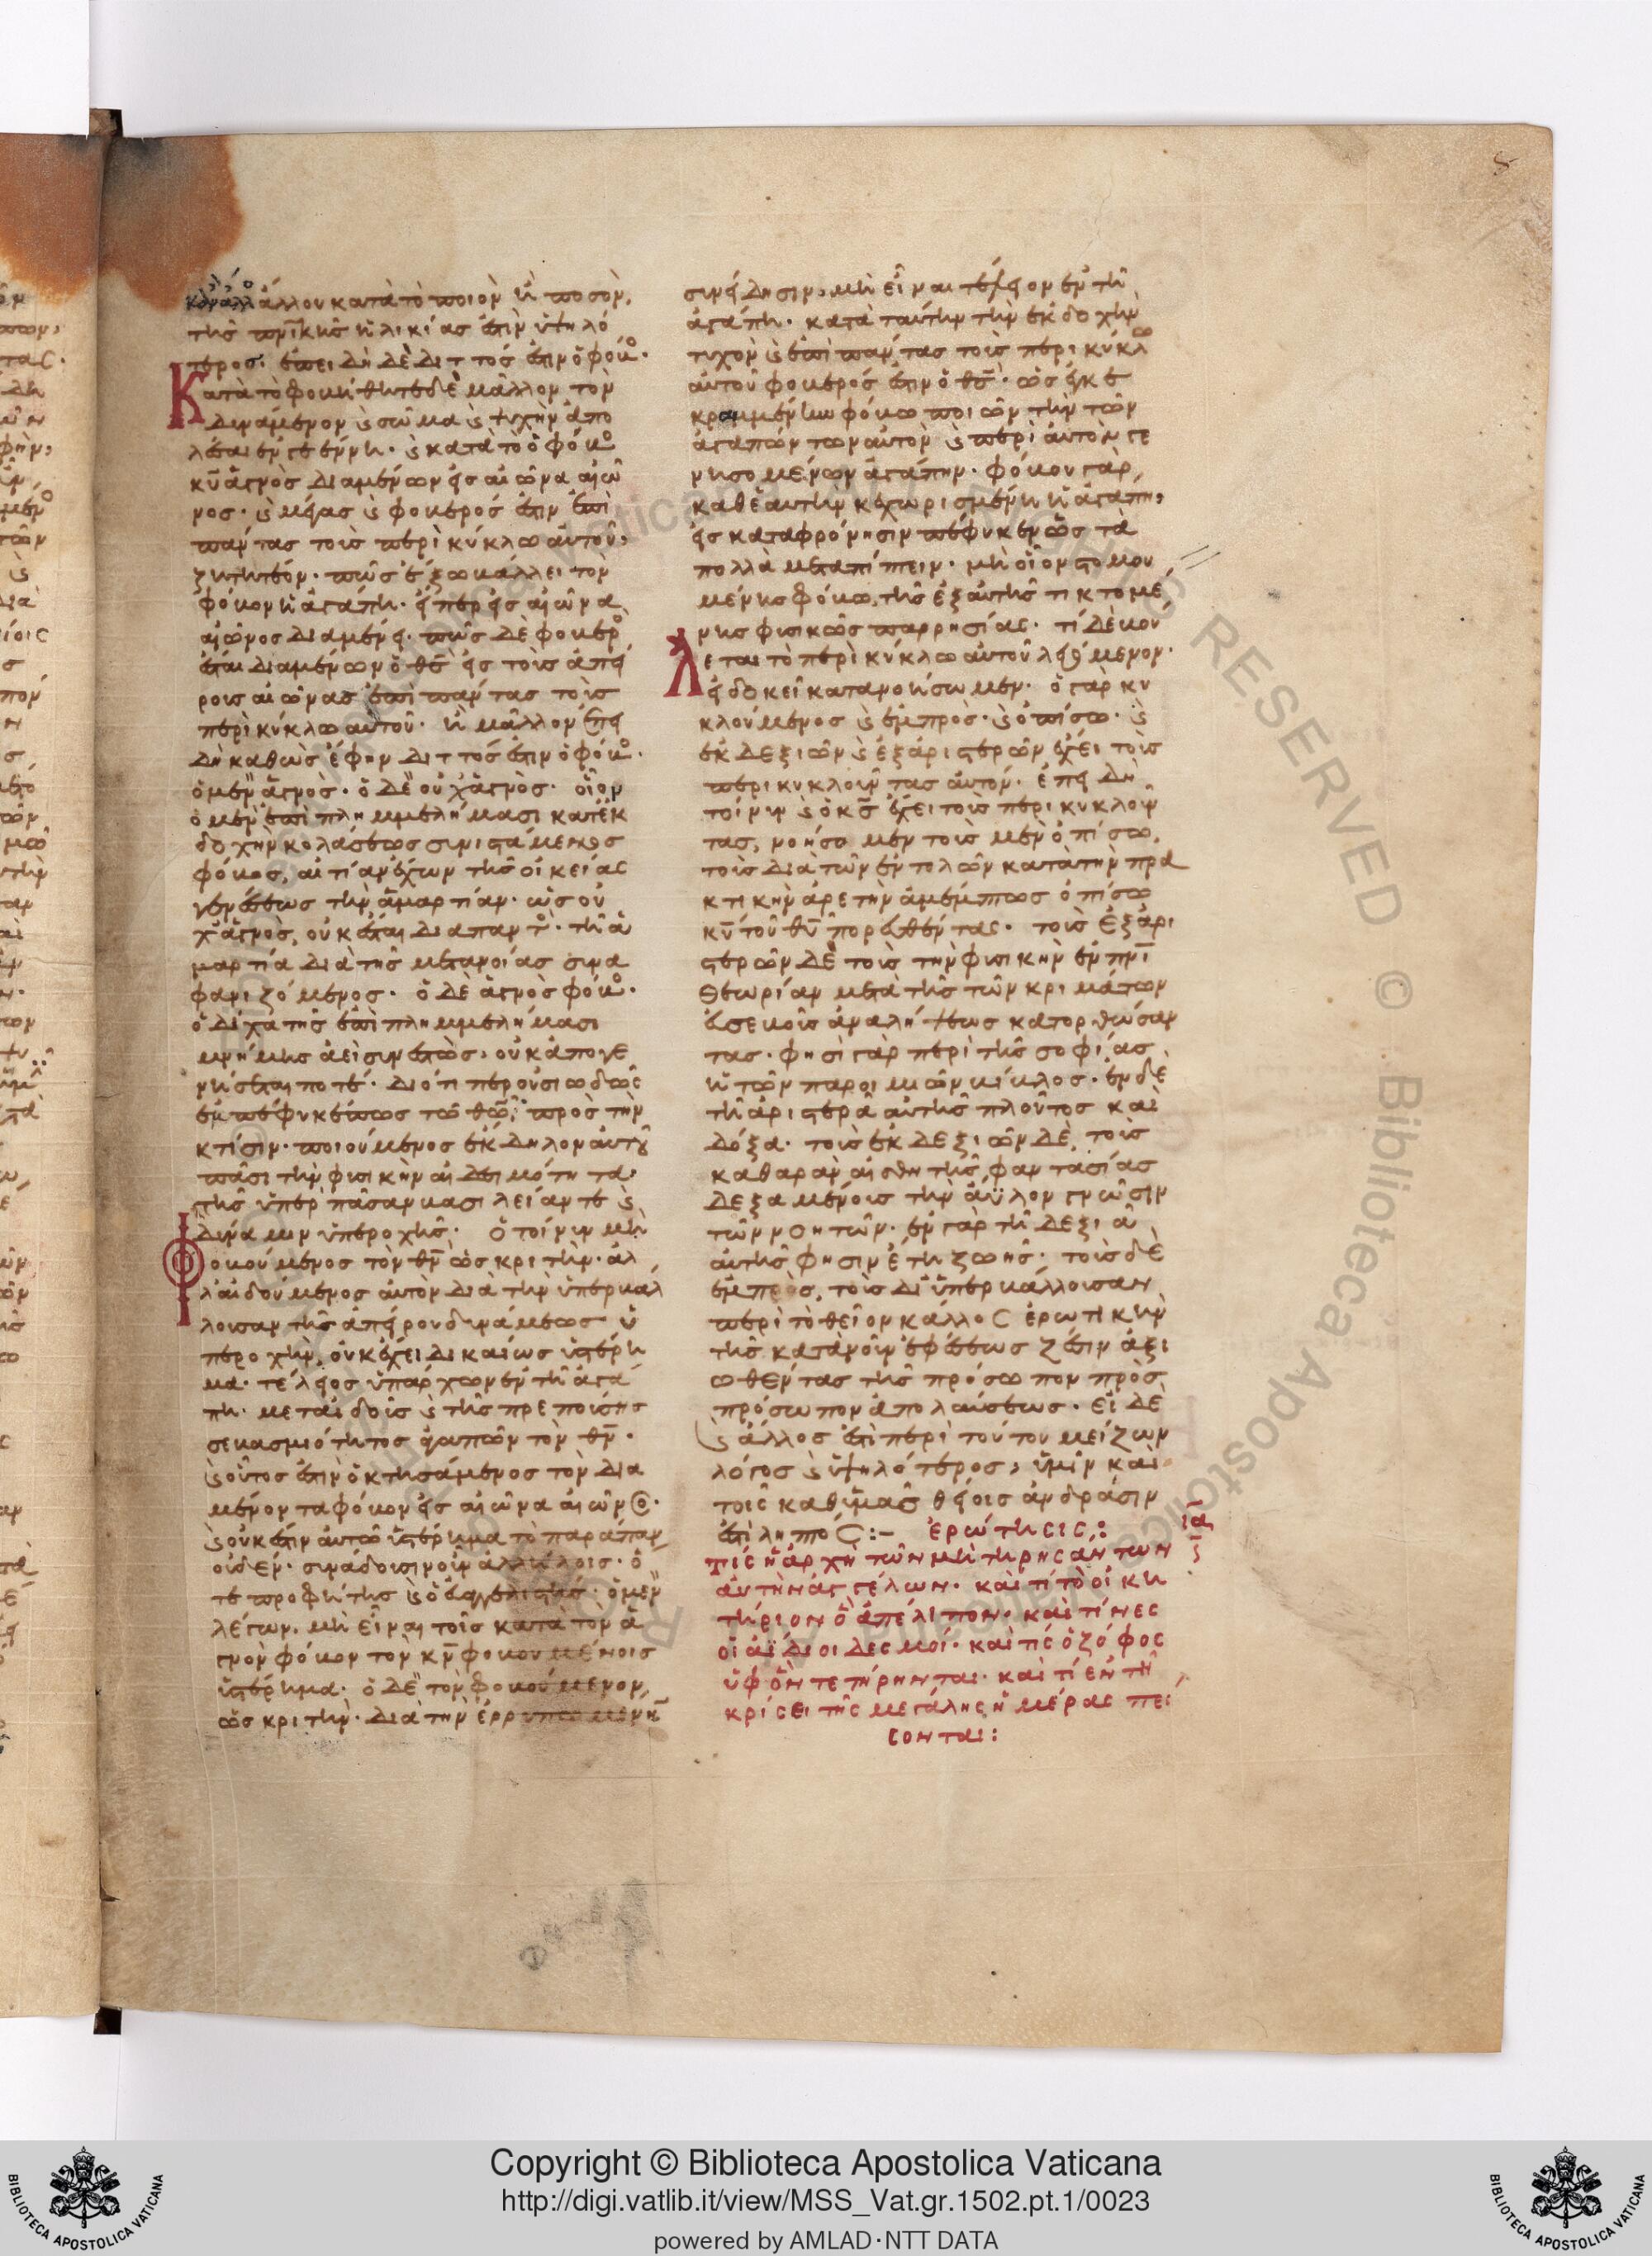 ς
κἂν ἄλλο ἄλλου κατὰ τὸ ποιὸν ἢ ποσὸν,
τῆς πνικῆς ἡλικίας ἐστὶν ὑψηλό
τερος· ἐπειδὴ δὲ διττός ἐστιν ὁ φόβος·
Κατὰ τὸ φοβήθητε δὲ μᾶλλον τὸν
δυνάμενον καὶ σῶμα καὶ ψυχὴν ἀπο
λέσαι ἐν γεέννη· καὶ κατὰ τὸ ὁ φόβος
κυ ἁγνὸς διαμένων εἰς αἰῶνα αἰῶ
νος· καὶ μέγας καὶ φοβερός ἐστιν ἐπὶ
πάντας τοὺς περὶ κύκλω αὐτοῦ,
ζητητέον· πῶς ἔξω βάλλει τὸν
φόβον ἡ ἀγάπη· εἴπερ εἰς αἰῶνα
αἰῶνος διαμένει· πῶς δὲ φοβερὸς
ἔσται διαμένων ὁ θς εἰς τοὺς ἀπεί
ρους αἰῶνας ἐπὶ πάντας τοὺς
περὶ κύκλω αὐτοῦ· ἢ μᾶλλον ἐπει
δὴ καθὼς ἔφην διττός ἐστιν ὁ φόβος·
ὁ μὲν ἁγνὸς· ὁ δὲ οὐχ ἁγνὸς· οἷον
ὁ μὲν ἐπὶ πλημμελήμασι κατ ἐκ
δοχὴν κολάσεως συνιστάμενος
φόβος, αἰτίαν ἔχων τῆς οἰκείας
γενέσεως τὴν ἁμαρτίαν· ὡς οὐ
χ ἁγνὸς, οὐκ ἔσται διαπαντὸς· τῆ ἁ
μαρτία διὰ τῆς μετανοίας συνα
φανιζόμενος· ὁ δὲ ἁγνὸς φόβος·
ὁ δίχα τῆς ἐπὶ πλημμελήμασι
μνήμης ἀεὶ συνεστὼς, οὐκ ἀπογε
νήσεται ποτέ· διότι περ οὐσιωδῶς
ἐμπέφυκε πως τῶ θῶ, πρὸς τὴν
κτίσιν· ποιούμενος ἔκδηλον αὐτοῦ
πᾶσι τὴν φυσικὴν αἰδεσιμότητα·
τῆς ὑπὲρ πᾶσαν βασιλείαν τε καὶ
δύναμιν ὑπεροχῆς· ὁ τοίνυν μὴ
Φοβούμενος τὸν θν ὡς κριτὴν· ἀλ
λ αἰδούμενος αὐτὸν διὰ τὴν ὑπερβάλ
λουσαν τῆς ἀπείρου δυνάμεως ὑ
περοχὴν, οὐκ ἔχει δικαίως ὑστέρη
μα· τέλειος ὑπάρχων ἐν τῆ ἀγά
πη· μετ αἰδοῦς καὶ τῆς πρεπούσης
σεβασμιότητος ἀγαπῶν τὸν θν·
καὶ οὗτος ἐστὶν ὁ κτησάμενος τὸν δια
μένοντα φόβον εἰς αἰῶνα αἰῶνος·
καὶ οὐκ ἔστιν αὐτῶ ὑστέρημα τὸ παράπαν
οὐδέν· συνάδουσι γοῦν ἀλλήλοις· ὅ
τε προφήτης καὶ ὁ εὐαγγελιστής· ὁ μὲν
λέγων, μὴ εἶναι τοῖς κατὰ τὸν ἁ
γνὸν φόβον τὸν κν φοβουμένοις
ὑστέρημα· ὁ δὲ τὸν φοβούμενον,
ὡς κριτὴν· διὰ τὴν ἐρρυπωμένην
συνείδησιν, μὴ εἶναι τέλειον ἐν τῆ
ἀγάπη· κατὰ ταύτην τὴν ἐκδοχὴν
τυχὸν καὶ ἐπὶ πάντας τοὺς περὶ κύκλω
αὐτοῦ φοβερός ἐστιν ὁ θς· ὡς ἐγκε
κραμμένην φόβω ποιῶν τὴν τῶν
ἀγαπώντων αὐτὸν καὶ περὶ αὐτὸν γε
νησομένων ἀγάπην· φόβου γὰρ,
καθ ἑαυτὴν κεχωρισμένη ἡ ἀγάπη,
εἰς καταφρόνησιν πέφυκεν ὡς τὰ
πολλὰ μεταπίπτειν· μὴ οἷον στομου
μένης φόβω, τῆς ἐξ αὐτῆς τικτομέ
νης φυσικῶς παρρησίας· τί δὲ βού
λεται τὸ περὶ κύκλω αὐτοῦ λεγόμενον·
εἰ δοκεῖ κατανοήσωμεν· ὁ γὰρ κυ
κλούμενος καὶ ἔμπροσ· καὶ ὀπίσω· καὶ
ἐκ δεξιῶν καὶ ἐξ ἀριστερῶν ἔχει τοὺς
περικυκλοῦντας αὐτόν· ἐπειδὴ
τοίνυν καὶ ὁ κς ἔχει τοὺς περικυκλοῦν
τας, νοήσομεν τοὺς μὲν ὀπίσω,
τοὺς διὰ τῶν ἐντολῶν κατὰ τὴν πρα
κτικὴν ἀρετὴν ἀμέμπτως ὀπίσω
κυ τοῦ θυ πορευθέντας· τοὺς ἐξ ἀρι
στερῶν δὲ τοὺς τὴν φυσικὴν ἐν πνι
θεωρίαν μετὰ τῆς τῶν κριμάτων
εὐσεβοῦς ἀναλήψεως κατορθώσαν
τας· φησὶ γὰρ περὶ τῆς σοφίας
ἡ τῶν παροιμιῶν βίβλος· ἐν δὲ
τῆ ἀριστερᾶ αὐτῆς πλοῦτος καὶ
δόξα· τοὺς ἐκ δεξιῶν δὲ, τοὺς
καθαρὰν αἰσθητῆς φαντασίας
δεξαμένους τὴν ἄϋλον γνῶσιν
τῶν νοητῶν· ἐν γὰρ τῆ δεξιᾶ
αὐτῆς φησιν ἔτη ζωῆς· τοὺς δὲ
ἔμπροσ, τοὺς δι ὑπερβάλλουσαν
περὶ τὸ θεῖον κάλλος ἐρωτικὴν
τῆς κατὰ νοῦν ἐφέσεως ζέσιν ἀξι
ωθέντας τῆς πρόσωπον πρὸς
πρόσωπον ἀπολαύσεως· εἰ δὲ
καὶ ἄλλος ἐστὶ περὶ τούτου μείζων
λόγος καὶ ὑψηλότερος, ὑμῖν καὶ
τοῖς καθ ὑμᾶς θείοις ἀνδράσιν
ἐστὶ ληπτός:– ἐρώτησις:
ια
Τίς ἡ ἀρχὴ τῶν μὴ τηρησάντων
αὐτὴν ἀγγέλων· καὶ τί τὸ οἰκη
τήριον ὃ ἀπέλιπον· καὶ τίνες
οἱ ἀΐδιοι δεσμοί· καὶ τίς ὁ ζόφος
ὑφ ὃν τετήρηνται· καὶ τί ἐν τῆ
κρίσει τῆς μεγάλης ἡμέρας πεί
σονται:
Copyright © Biblioteca Apostolica Vaticana
http://digi.vatlib.it/view/MSS_Vat.gr.1502.pt.1/0023
powered by AMLAD·NTT DATA
BIBLIOTECA APOSTOLICA VATICANA
BIBLIOTECA APOSTOLICA VATICANA